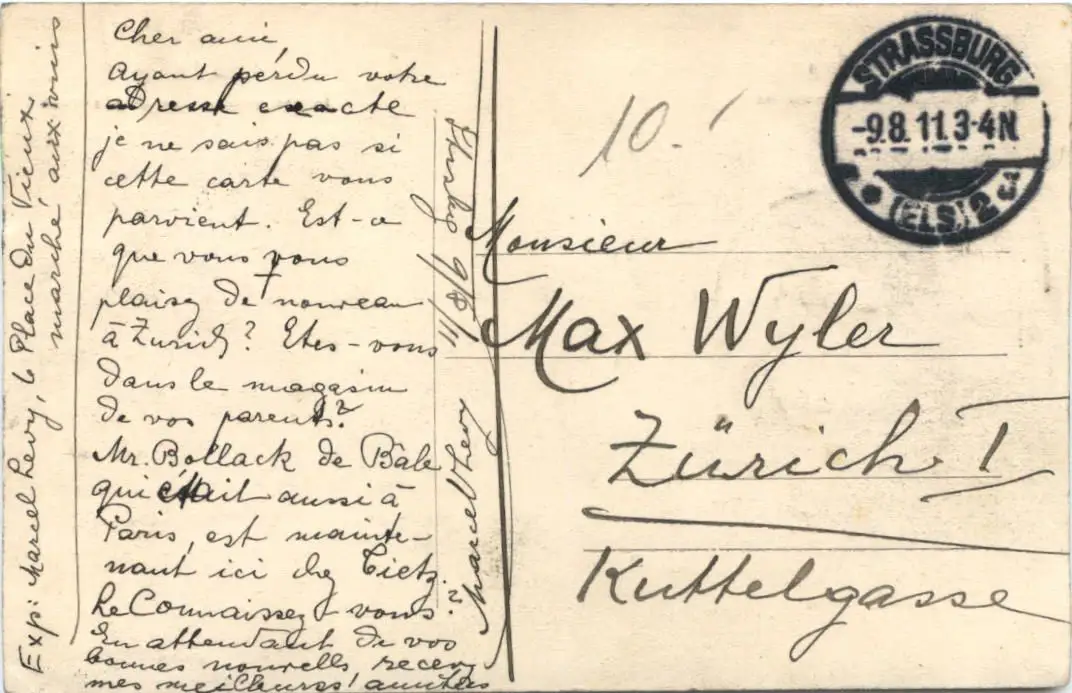 Cher ami,
Ayant perdu votre
adresse exacte
je ne sais pas si
cette carte vous
parvient. Est-ce
que vous vous
plaisez de nouveau
à Zurich? Etes-vous
dans le magasin
de vos parents?
Mr. Bollack de Bâle
qui était aussi à
Paris, est mainte-
nant ici chez Tietz.
Le Connaissez-vous?
En attendant de vos
bonnes nouvelles, recevez
mes meilleures amitiés
Marcel Levy
Strasbg 9/8/11
Exp: Marcel Levy, 6 Place du Vieux
marché aux vins
10.-
STRASSBURG
-9.8.11.3-4N.
(ELS.) 2
Monsieur
Max Wyler
Zürich I
Kuttelgasse